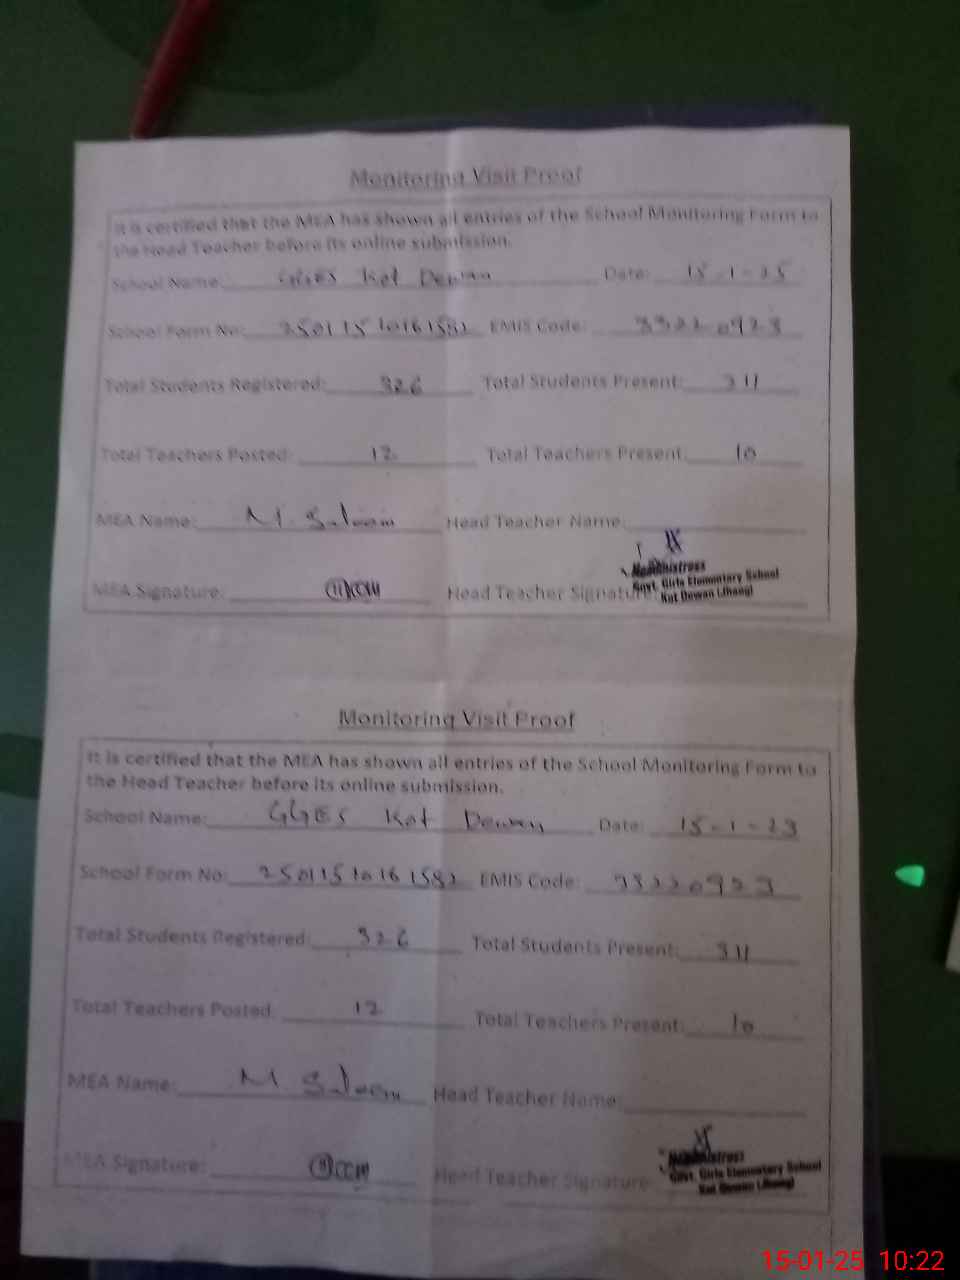 Monitoring Visit Proof
It is certified that the MEA has shown all entries of the School Monitoring Form to
the Head Teacher before its online submission.
School Name: GGES Kot Dewan Date: 15-1-25
School Form No: 25011510161582 EMIS Code: 33220923
Total Students Registered: 326 Total Students Present: 311
Total Teachers Posted: 12 Total Teachers Present: 10
MEA Name: M. Saleem Head Teacher Name:
MEA Signature: Head Teacher Signature:
Headmistress
Govt. Girls Elementary School
Kot Dewan (Jhang)
Monitoring Visit Proof
It is certified that the MEA has shown all entries of the School Monitoring Form to
the Head Teacher before its online submission.
School Name: GGES Kot Dewan Date: 15-1-25
School Form No: 25011510161582 EMIS Code: 33220923
Total Students Registered: 326 Total Students Present: 311
Total Teachers Posted: 12 Total Teachers Present: 10
MEA Name: M Saleem Head Teacher Name:
MEA Signature: Head Teacher Signature:
Headmistress
Govt. Girls Elementary School
Kot Dewan (Jhang)
15-01-25 10:22